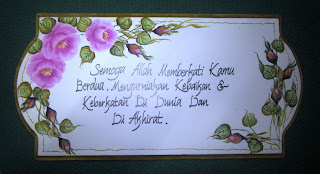 Semoga Allah Memberkati Kamu
Berdua, Mengurniakan Kebaikan &
Keberkatan Di Dunia Dan
Di Akhirat.